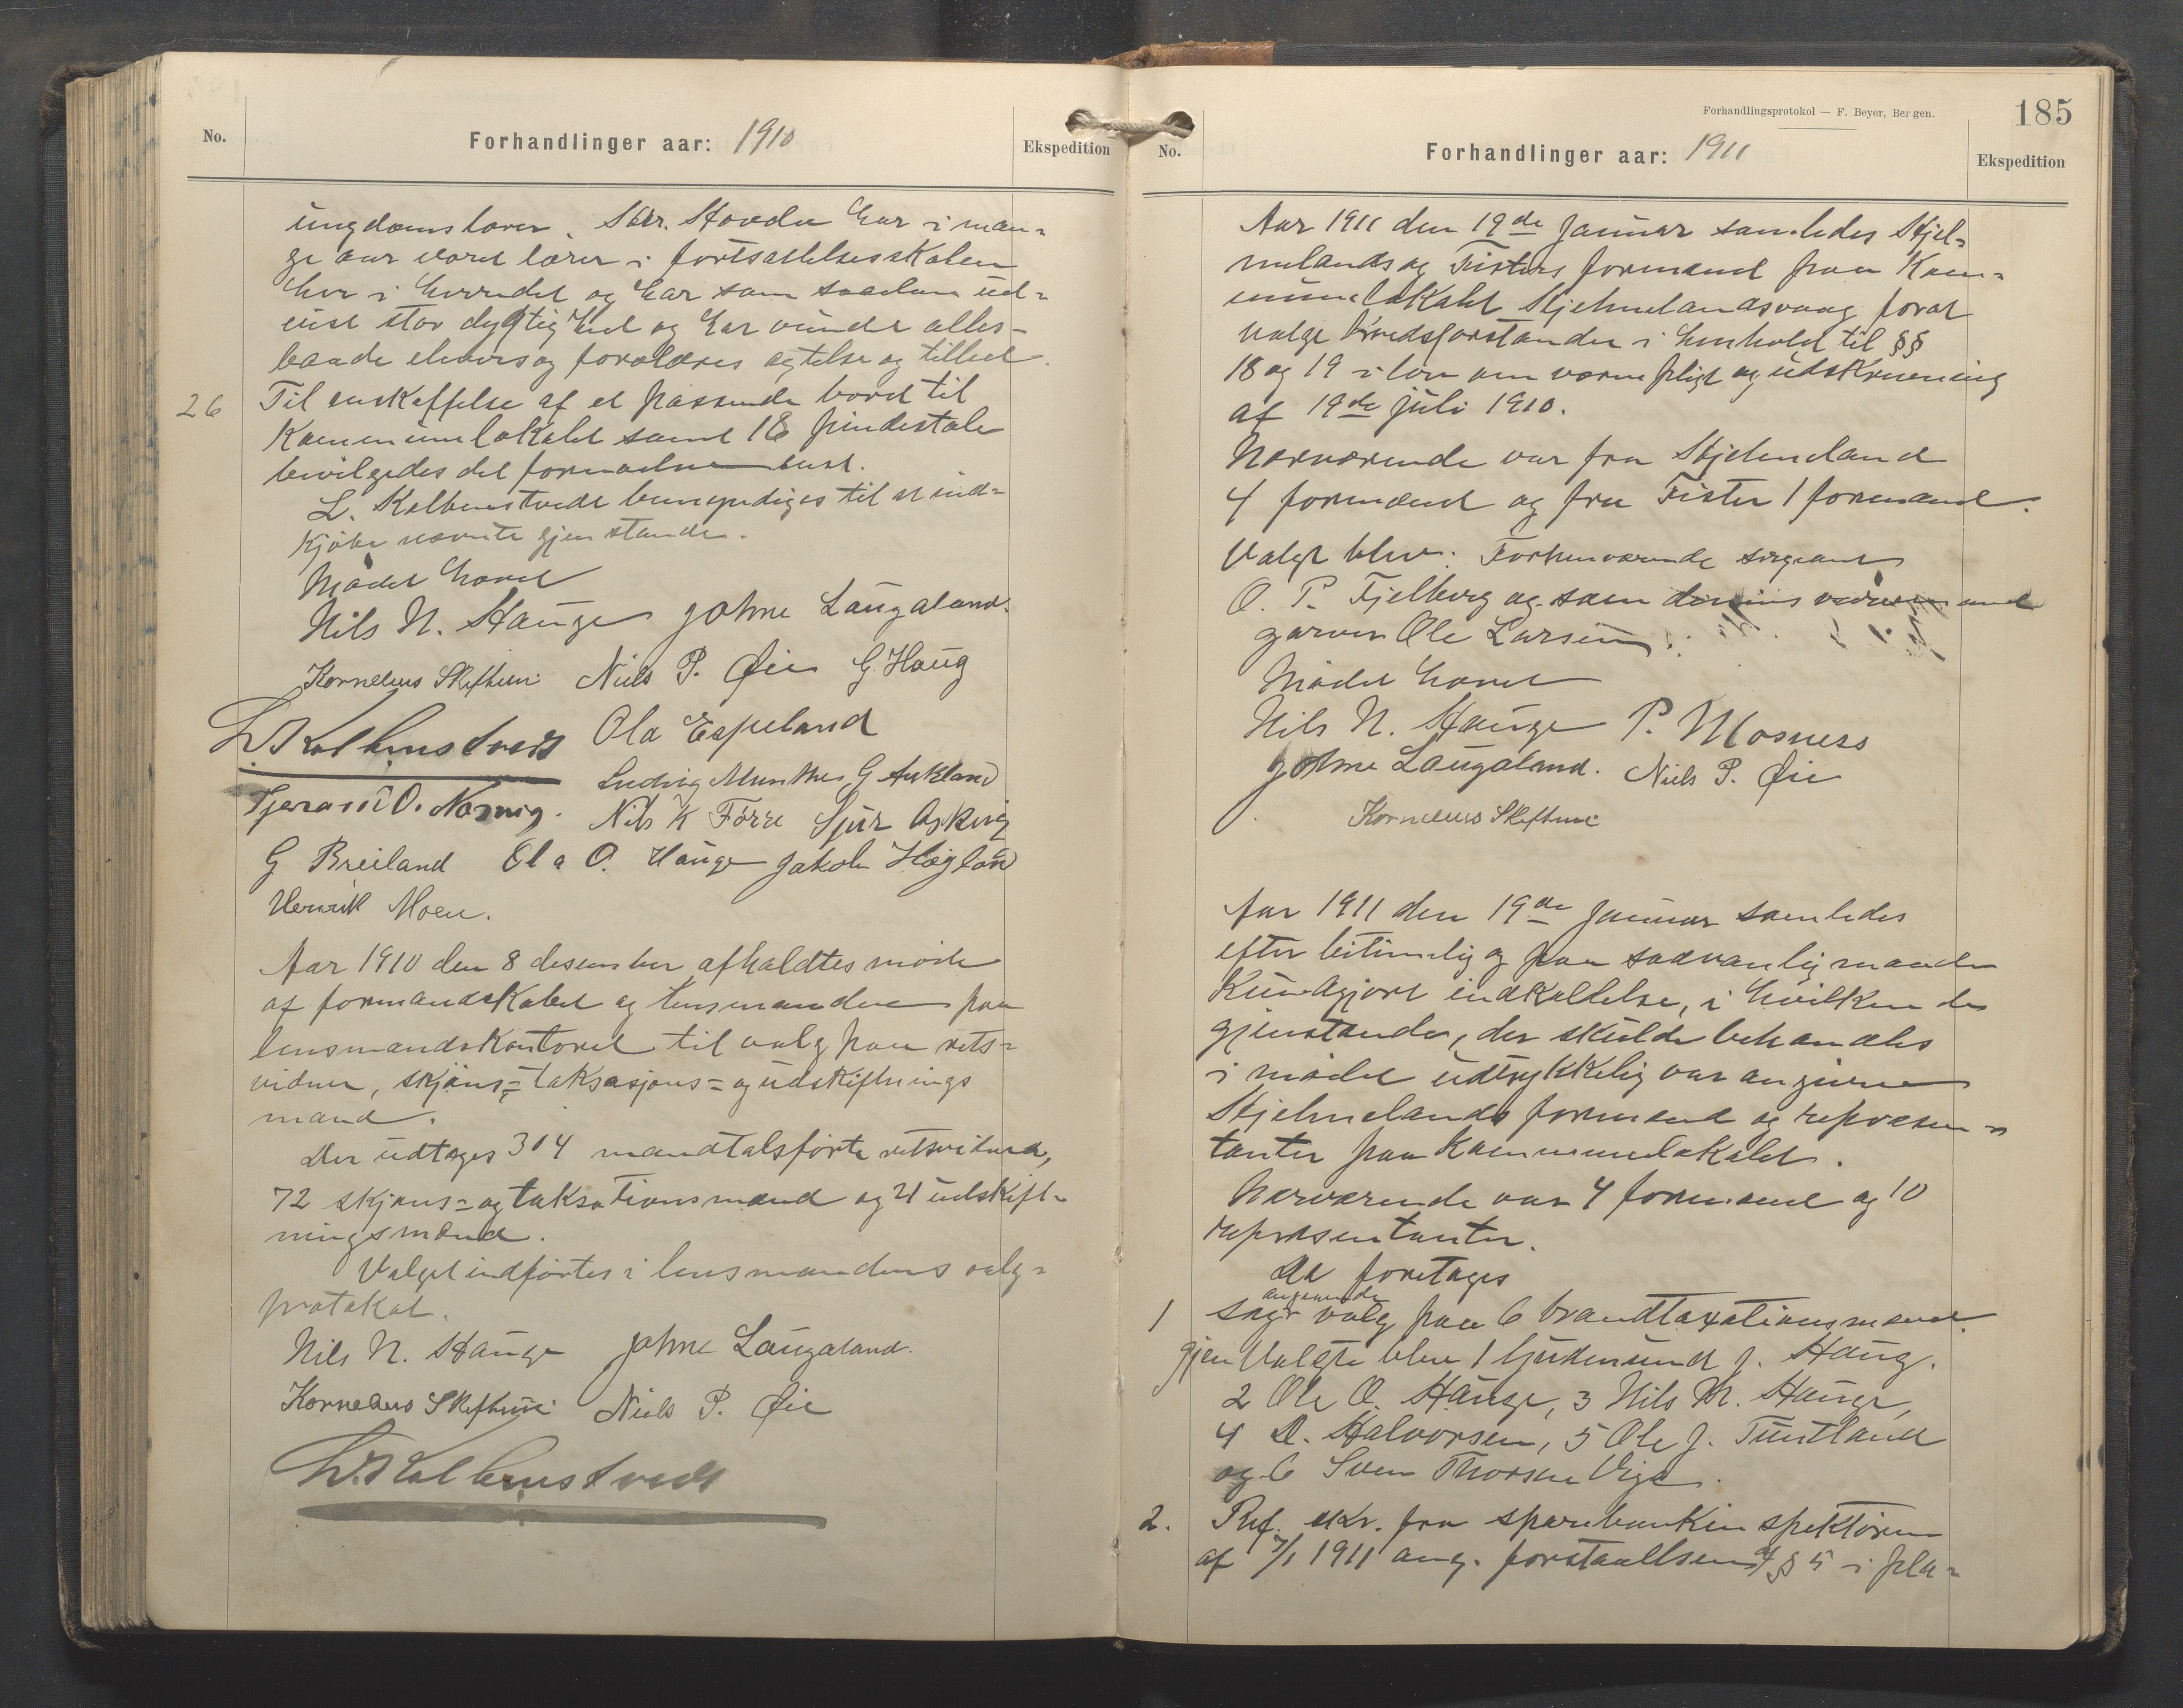 No.
Forhandlinger aar: 1910
Ekspedition
ungdomslærer. Hr. Hovda har i man=
ge aar været lærer i fortsættelsesskolen
her i herredet og har som saadan ud=
vist stor dygtighed og har vundet alles-
baade elevers og forældres agtelse og tillid.
26 Til anskaffelse af et passende bord til
Kommunelokalet samt 18 pindestole
bevilgedes det fornødne enst.
L. Kolbenstvedt bemyndiges til at ind=
kjøbe nævnte gjenstande.
Mødet hævet
Nils N. Hauge Johne Laugaland.
Kornelius Skeftun Niels P. Øie G. Haug
L. Kolbenstvedt Ola Espeland
Ludvig Munthe G Aukland
O. Nils K Førre Sjur
G Breiland Ola O. Hauge Jakob Høgland
Henrik Moen.
Aar 1910 den 8 desember afholdtes møde
af formandskabet og lensmanden paa
lensmandskontoret til valg paa rets=
vidner, skjøns= taksasjons= og udskiftnings
mænd.
Der udtoges 304 mandtalsførte retsvidner,
72 skjøns= og taksationsmænd og 21 udskift=
ningsmænd.
Valget indførtes i lensmandens valg=
protokol.
Nils N. Hauge Johne Laugaland.
Kornelius Skeftun Niels P. Øie
L. Kolbenstvedt
Forhandlingsprotokol — F. Beyer, Bergen.
185
No.
Forhandlinger aar: 1911
Ekspedition
Aar 1911 den 19de Januar samledes Hjel=
melands og Fisters formænd paa Kom=
munelokalet Hjelmelandsvaag forat
vælge kredsforstander i henhold til §§
18 og 19 i lov om værnepligt og udskrivning
af 19de juli 1910.
Nærværende var fra Hjelmeland
4 formænd og fra Fister 1 formand.
Valgt blev: Forhenværende sergeant
O. P. Fjelberg og som dennes varamand
garver Ole Larsen.
Mødet hævet
Nils N. Hauge P. Mosness
Johne Laugaland. Niels P. Øie
Kornelius Skeftun
Aar 1911 den 19de Januar samledes
efter betimelig og paa sædvanlig maade
kundgjort indkaldelse, i hvilken de
gjenstande, der skulde behandles
i mødet udtrykkelig var angivne
Hjelmelands formænd og repræsen=
tanter paa Kommunelokalet.
Nærværende var 4 formænd og 10
repræsentanter.
Da foretages
1 Sag angaaende valg paa 6 brandtaxationsmænd.
Gjenvalgte blev 1 Gudmund J. Haug.
2 Ole O. Hauge, 3 Nils M. Hauge,
4 D. Halvorsen, 5 Ole J. Tuntland
og 6 Sven Thorsen Viga.
2. Ref. skr. fra sparebankinspektøren
af 7/1 1911 ang. forstaaelsen af § 5 i pla=